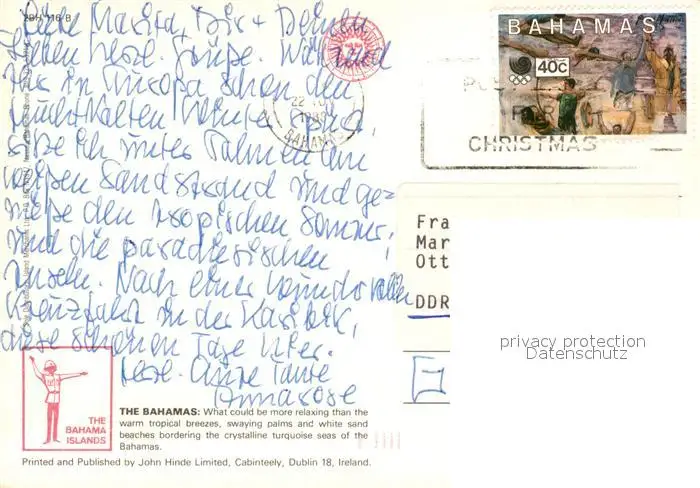 2BH 116 B
Liebe Marita, Dir + Deinen
Lieben herzl. Grüße. Während
das in Europa schon den
feucht kalten Winter spürt,
sitze ich unter Palmen am
weißen Sandstrand und ge=
nieße den tropischen Sommer,
und die paradiesischen
Inseln. Nach einer wundervollen
Kreuzfahrt in der Karibik,
diese schönen Tage hier.
Herzl. Tante
Annarose
BAHAMAS
40c
22
BAHAMAS
CHRISTMAS
Fra
Mar
Ott
DDR
privacy protection
Datenschutz
THE
BAHAMA
ISLANDS
THE BAHAMAS: What could be more relaxing than the
warm tropical breezes, swaying palms and white sand
beaches bordering the crystalline turquoise seas of the
Bahamas.
Printed and Published by John Hinde Limited, Cabinteely, Dublin 18, Ireland.